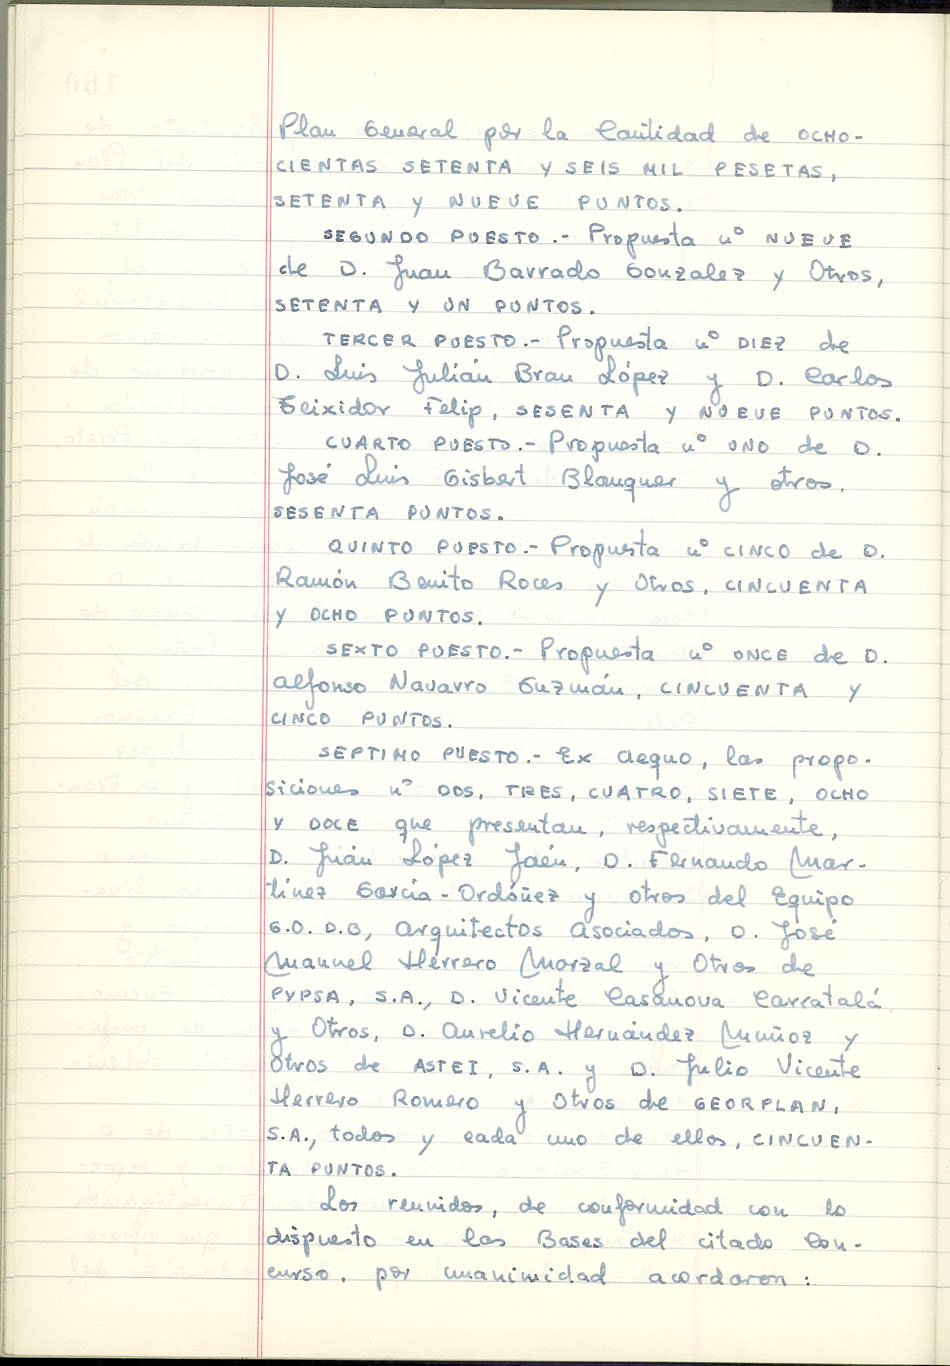 Plan General por la Cantidad de OCHO-
CIENTAS SETENTA Y SEIS MIL PESETAS,
SETENTA Y NUEVE PUNTOS.
SEGUNDO PUESTO.- Propuesta nº NUEVE
de D. Juan Barrado Gonzalez y Otros,
SETENTA Y UN PUNTOS.
TERCER PUESTO.- Propuesta nº DIEZ de
D. Luis Julián Brau López y D. Carlos
Teixidor Felip, SESENTA Y NUEVE PUNTOS.
CUARTO PUESTO.- Propuesta nº UNO de D.
José Luis Gisbert Blanquer y otros,
SESENTA PUNTOS.
QUINTO PUESTO.- Propuesta nº CINCO de D.
Ramón Benito Roces y Otros, CINCUENTA
Y OCHO PUNTOS.
SEXTO PUESTO.- Propuesta nº ONCE de D.
Alfonso Navarro Guzmán, CINCUENTA Y
CINCO PUNTOS.
SEPTIMO PUESTO.- Ex aequo, las propo-
siciones nº DOS, TRES, CUATRO, SIETE, OCHO
Y DOCE que presentan, respectivamente,
D. Juán López Jaén, D. Fernando Mar-
tínez García-Ordóñez y otros del Equipo
G.O. D.B, Arquitectos Asociados, D. José
Manuel Herrero Marzal y Otros de
PYPSA, S.A., D. Vicente Casanova Carratalá
y Otros, D. Aurelio Hernández Muñoz y
Otros de ASTEI, S.A. y D. Julio Vicente
Herrero Romero y Otros de GEORPLAN,
S.A., todos y cada uno de ellos, CINCUEN-
TA PUNTOS.
Los reunidos, de conformidad con lo
dispuesto en las Bases del citado Con-
curso, por unanimidad acordaron: